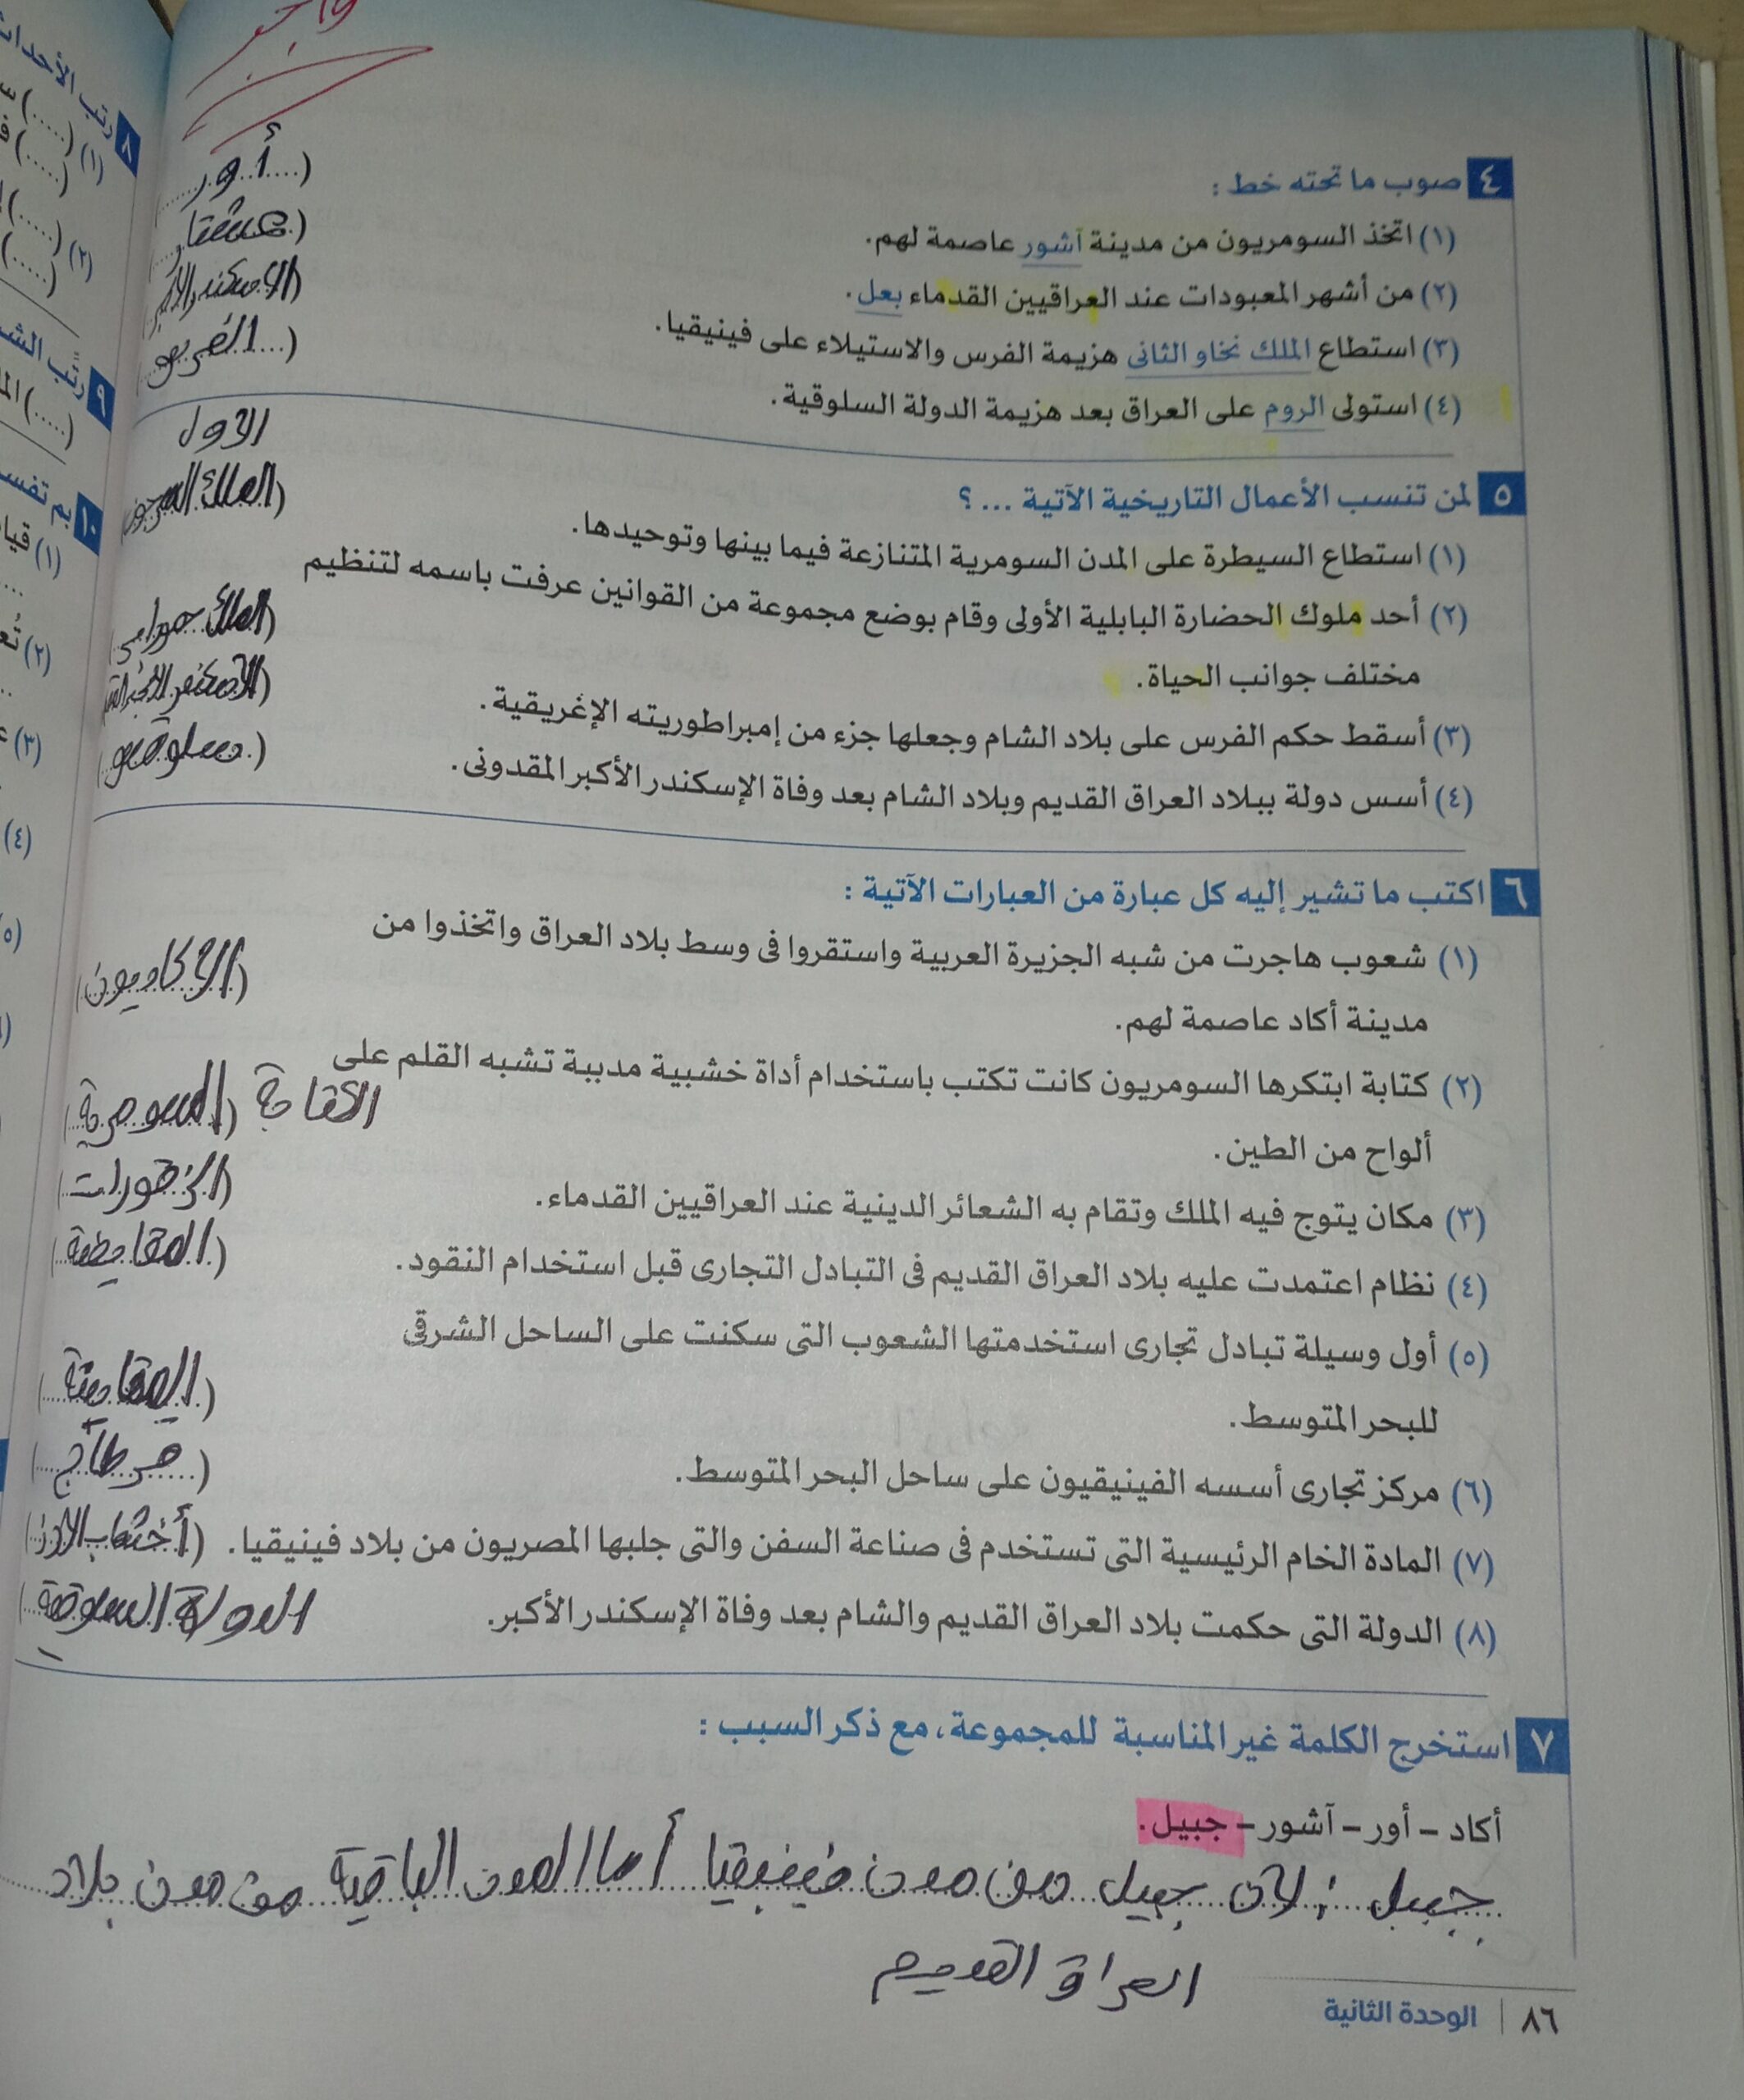 واجب
٤ صوب ما تحته خط :
(١) اتخذ السومريون من مدينة آشور عاصمة لهم. (أور)
(٢) من أشهر المعبودات عند العراقيين القدماء بعل. (عشتار)
(٣) استطاع الملك نخاو الثانى هزيمة الفرس والاستيلاء على فينيقيا. (الإسكندر الأكبر)
(٤) استولى الروم على العراق بعد هزيمة الدولة السلوقية. (الفرس)
٥ لمن تنسب الأعمال التاريخية الآتية ... ؟
(١) استطاع السيطرة على المدن السومرية المتنازعة فيما بينها وتوحيدها. (الملك سرجون الأول)
(٢) أحد ملوك الحضارة البابلية الأولى وقام بوضع مجموعة من القوانين عرفت باسمه لتنظيم
مختلف جوانب الحياة. (الملك حمورابى)
(٣) أسقط حكم الفرس على بلاد الشام وجعلها جزء من إمبراطوريته الإغريقية. (الإسكندر الأكبر)
(٤) أسس دولة ببلاد العراق القديم وبلاد الشام بعد وفاة الإسكندر الأكبر المقدونى.
٦ اكتب ما تشير إليه كل عبارة من العبارات الآتية :
(١) شعوب هاجرت من شبه الجزيرة العربية واستقروا فى وسط بلاد العراق واتخذوا من
مدينة أكاد عاصمة لهم. (الأكاديون)
(٢) كتابة ابتكرها السومريون كانت تكتب باستخدام أداة خشبية مدببة تشبه القلم على
ألواح من الطين. (السومرية)
(٣) مكان يتوج فيه الملك وتقام به الشعائر الدينية عند العراقيين القدماء. (الزقورات)
(٤) نظام اعتمدت عليه بلاد العراق القديم فى التبادل التجارى قبل استخدام النقود. (المقايضة)
(٥) أول وسيلة تبادل تجارى استخدمتها الشعوب التى سكنت على الساحل الشرقى
للبحر المتوسط. (المقايضة)
(٦) مركز تجارى أسسه الفينيقيون على ساحل البحر المتوسط. (قرطاج)
(٧) المادة الخام الرئيسية التى تستخدم فى صناعة السفن والتى جلبها المصريون من بلاد فينيقيا. (أخشاب الأرز)
(٨) الدولة التى حكمت بلاد العراق القديم والشام بعد وفاة الإسكندر الأكبر. الدولة السلوقية
٧ استخرج الكلمة غير المناسبة للمجموعة، مع ذكر السبب :
أكاد – أور – آشور – جبيل.
جبيل : لأن جبيل من مدن فينيقيا أما المدن الباقية من مدن بلاد
العراق القديم
٨٦ | الوحدة الثانية
٨ رتب الأحداث
٩ رتب
١٠ بم تفسر